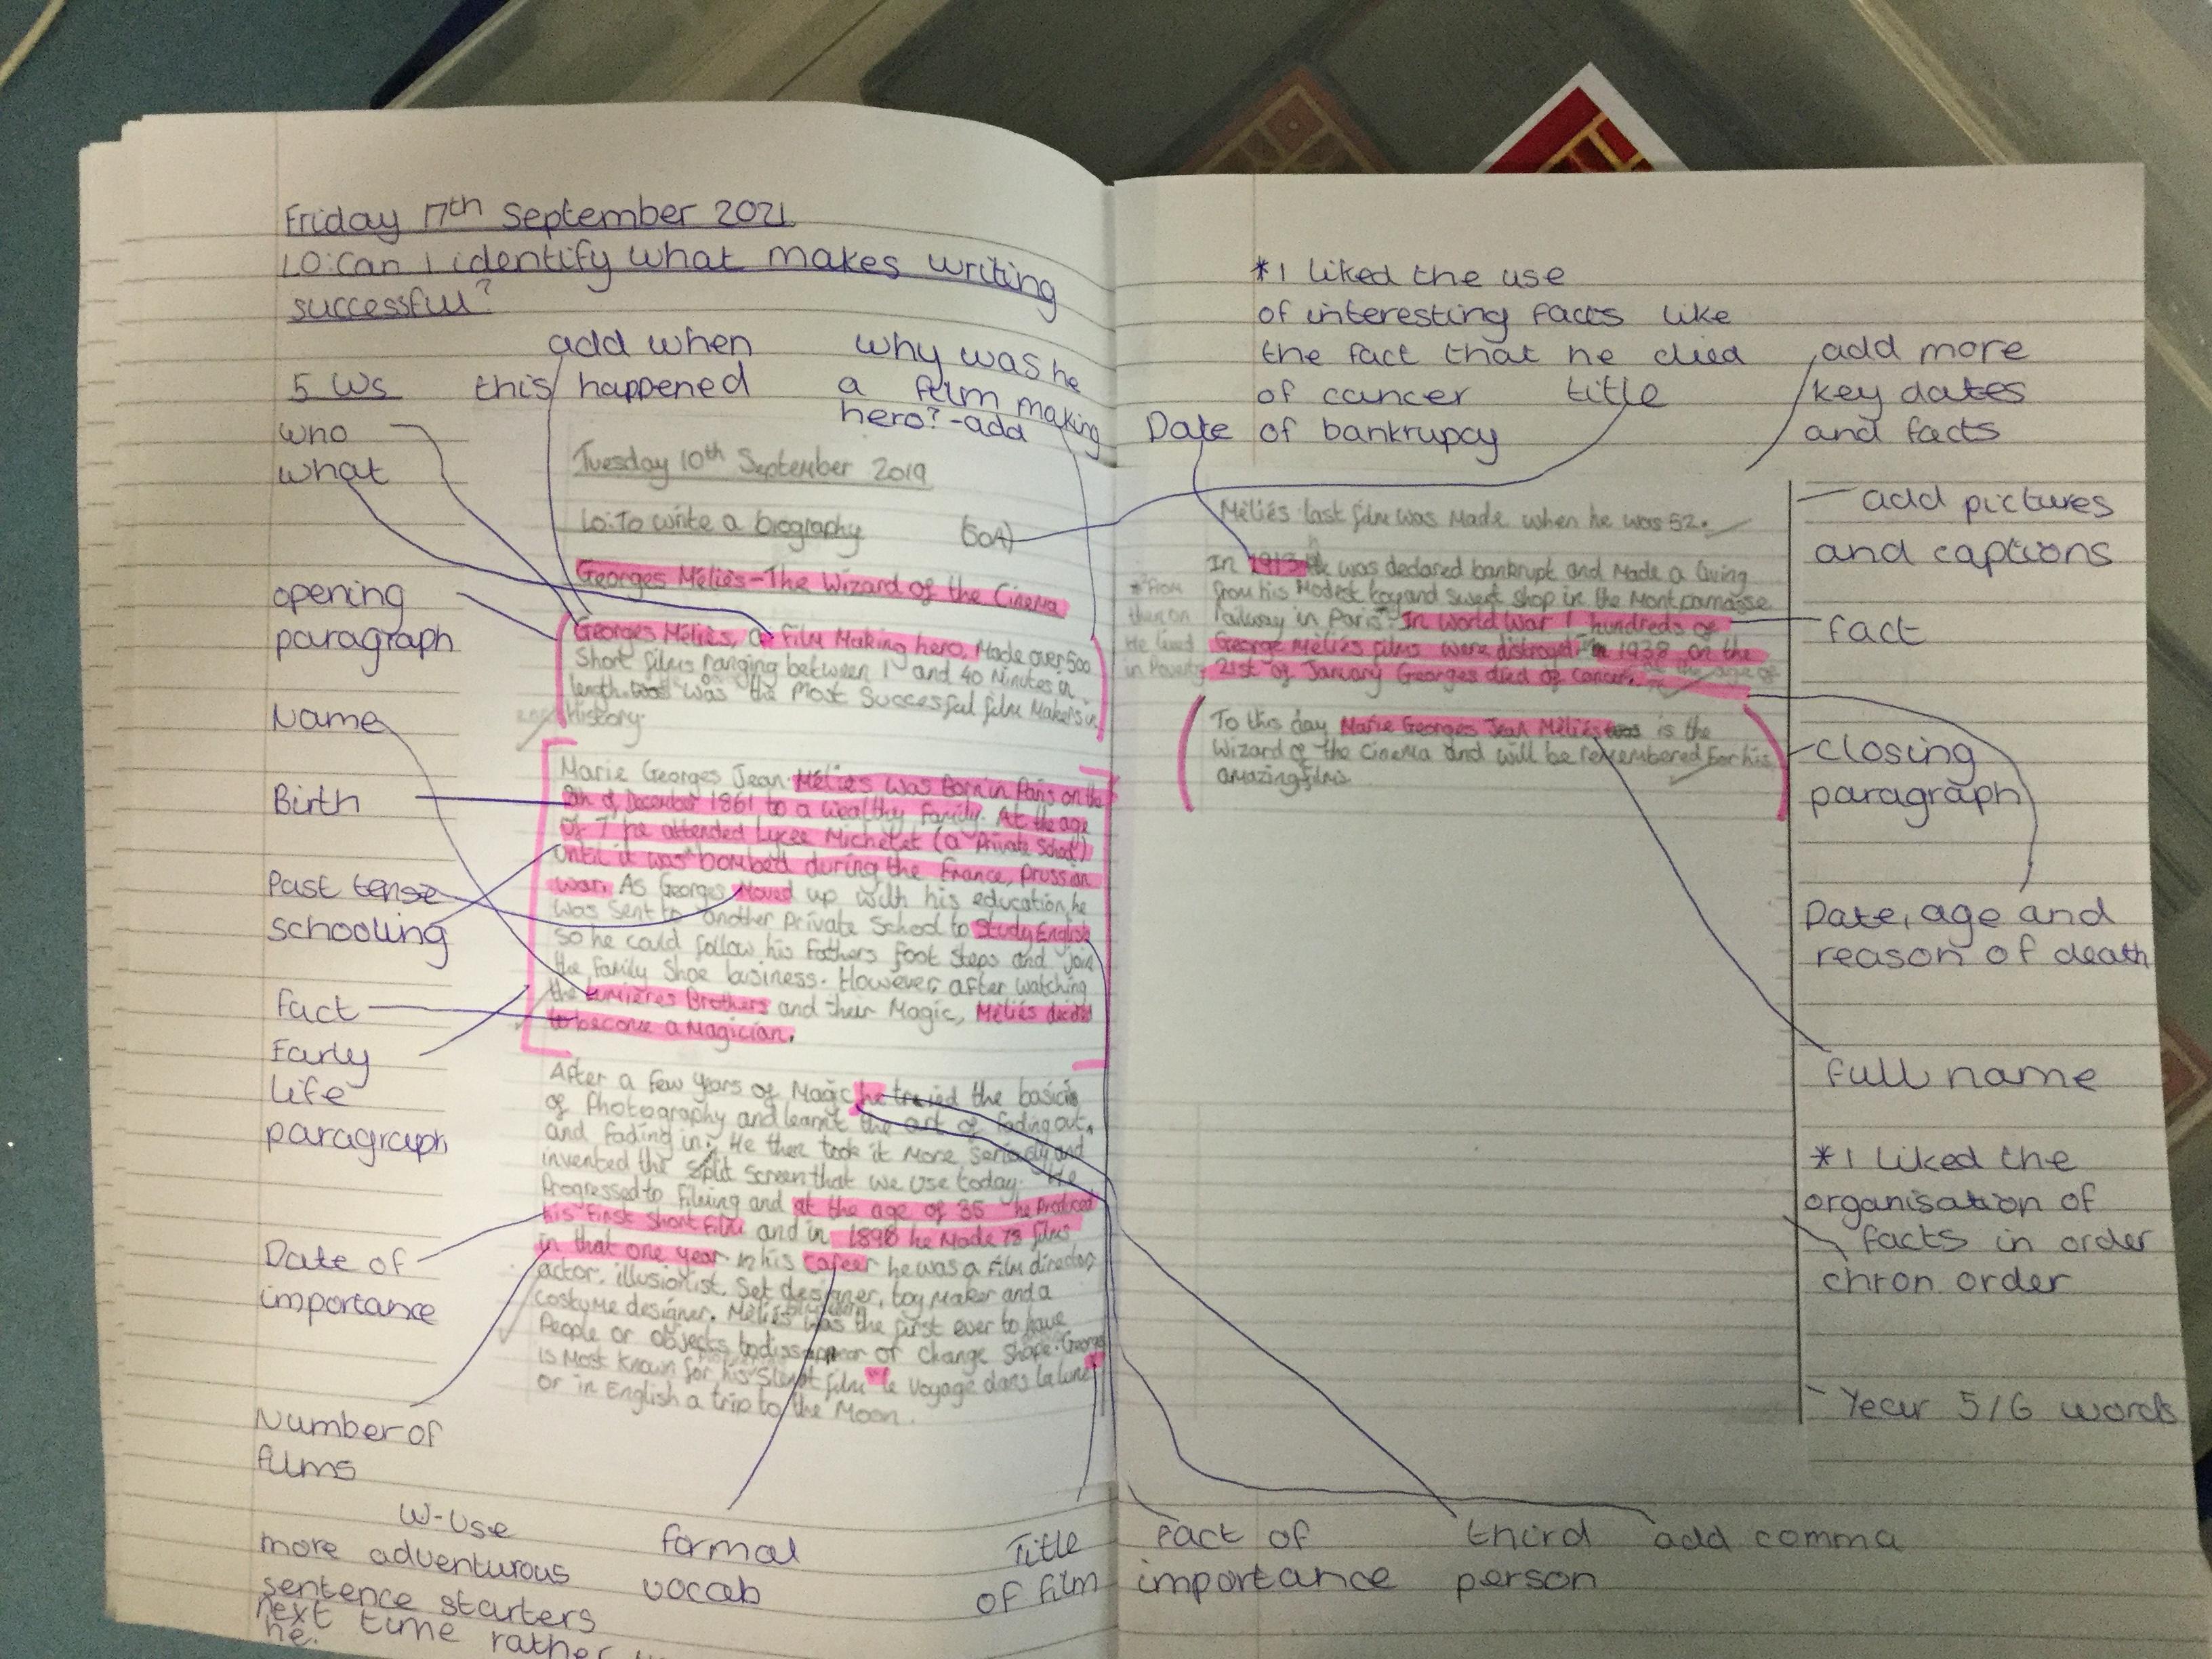 Friday 17th September 2021
LO: Can I identify what makes writing
successful?
add when
this happened
why was he
a film making
hero? - add
5 Ws
who
what
opening
paragraph
Name
Birth
Past tense
schooling
fact
Early
life
paragraph
Date of
importance
Number of
films
W-Use
more adventurous
sentence starters
next time rather
he.
formal
vocab
Title
of film
Tuesday 10th September 2019
Lo: To write a biography
Georges Méliès - The Wizard of the Cinema
Georges Méliès, a film Making hero, Made over 500
Short films ranging between 1 and 40 Minutes in
length. was the Most Succesful film Makers in
History.
Marie Georges Jean Méliès was Born in Paris on the
8th of December 1861 to a wealthy family. At the age
of 7 he attended Lycee Michelet (a Private School)
until it was bombed during the France, prussian
war. As Georges Moved up with his education, he
was Sent to another Private School to Study English
So he could follow his Fathers foot Steps and join
the family Shoe business. However, after watching
the Lumières Brothers and their Magic, Méliès decided
to become a Magician.
After a few years of Magic he the basics
of Photography and learnt the art of fading out,
and fading in. He then took it More Seriously and
invented the Split Screen that we use today. He
Progressed to filming and at the age of 35 he Produced
his first short film and in 1896 he Made 78 films
in that one year in his career he was a film director,
actor, illusionist, Set designer, toy Maker and a
costume designer. Méliès was the first ever to have
People or objects or Change Shape. Georges
is Most Known for his film "le Voyage dans la lune"
or in English a trip to the Moon.
*I liked the use
of interesting facts like
the fact that he died
of cancer
of bankrupcy
title
Date
add more
key dates
and facts
Méliès last film was Made when he was 52.
In 1913 He was declared bankrupt and Made a living
from his Modest toy and Sweet shop in the Montparnasse
railway in Paris. In World War 1 hundreds of
George Méliès films were distroyed. in 1938 on the
21st of January Georges died of cancer.
*from
then on
He lived
in Poverty
To this day Marie Georges Jean Méliès is the
Wizard of the Cinema and will be remembered for his
amazing films.
add pictures
and captions
fact
closing
paragraph
Date, age and
reason of death
full name
*I liked the
organisation of
facts in order
chron order
Year 5/6 words
Fact of
importance
third
person
add comma